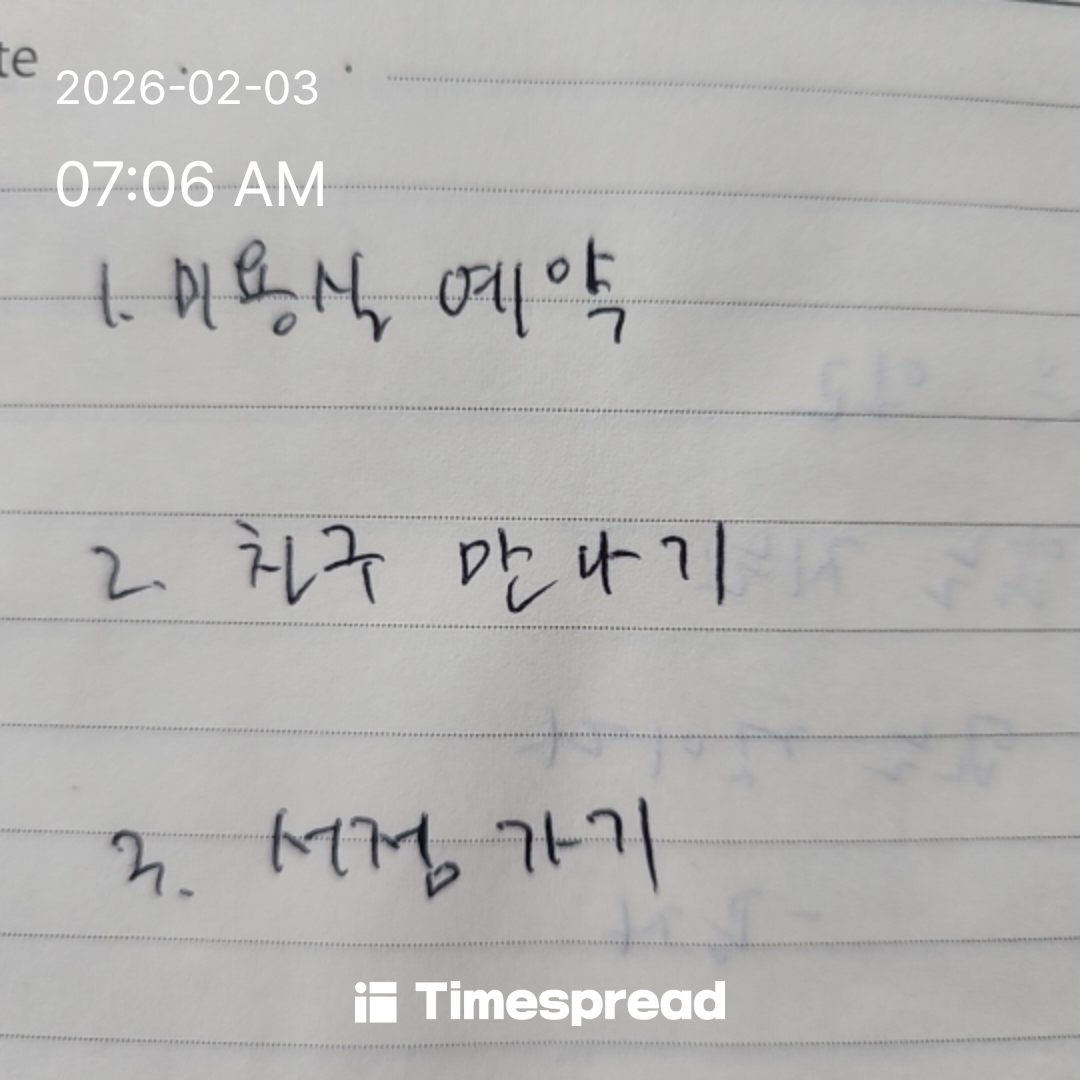 te
2026-02-03
07:06 AM
1. 미용실 예약
2. 친구 만나기
3. 서점 가기
Timespread